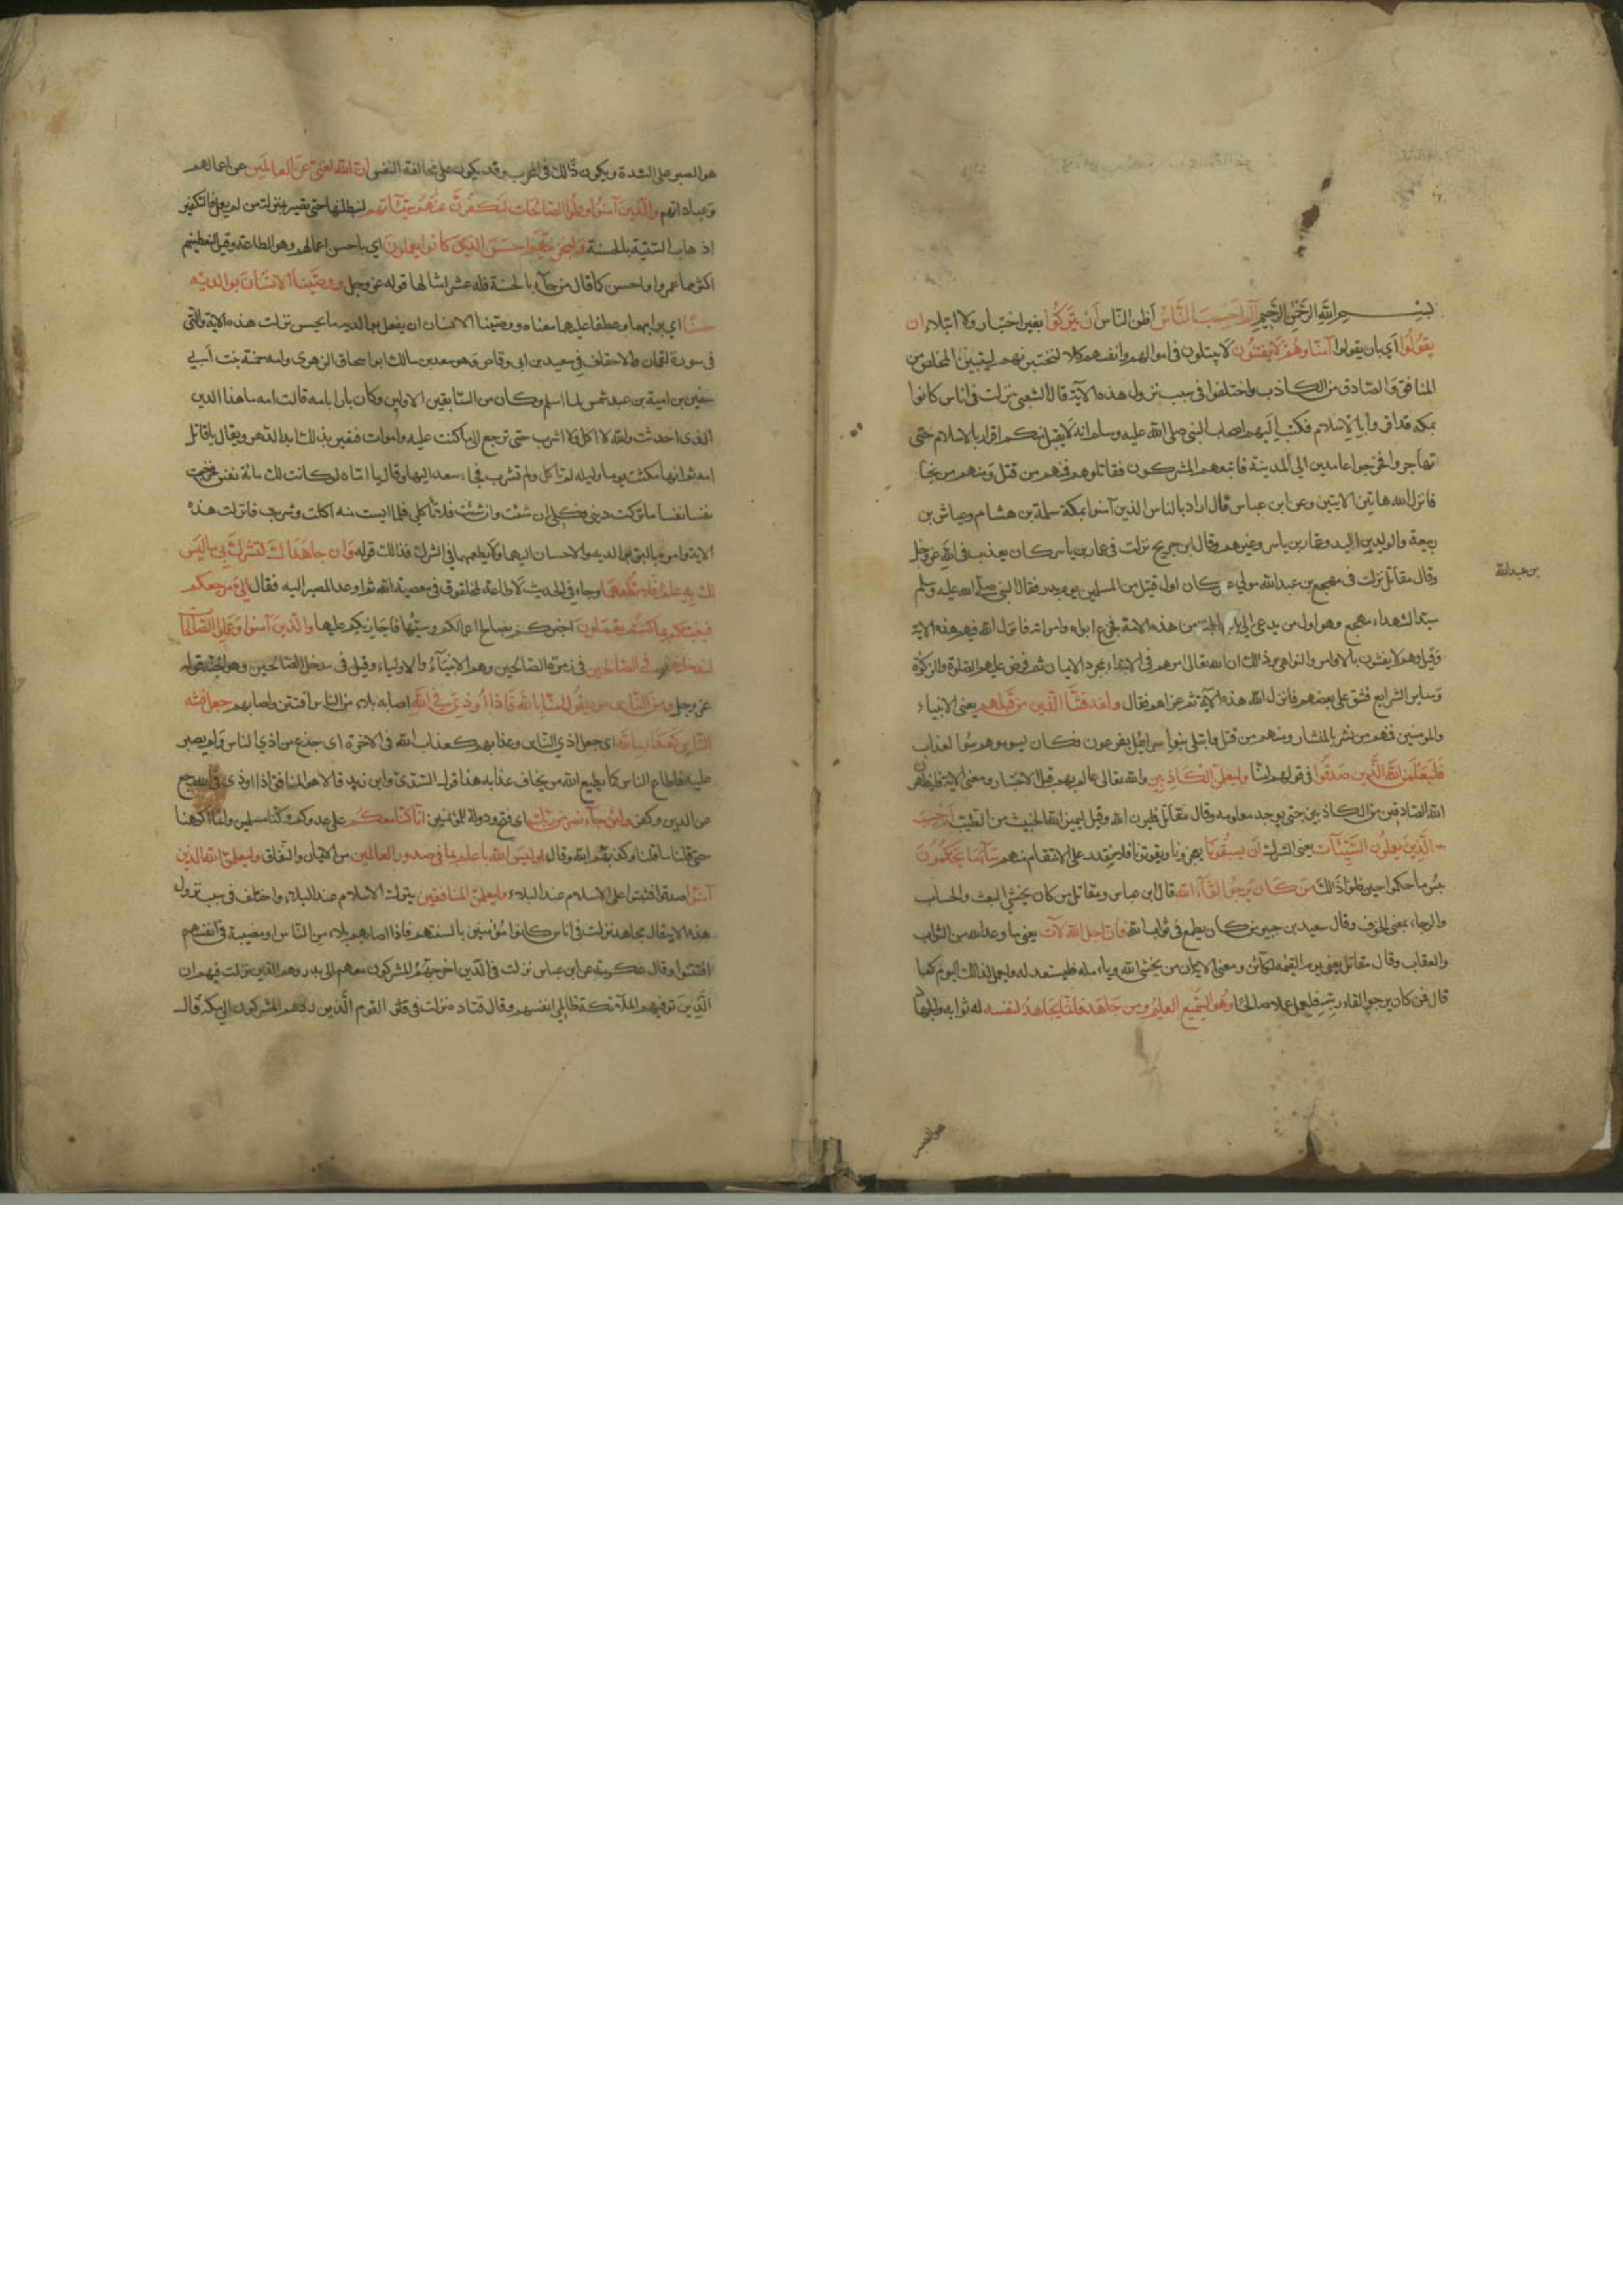 بسم الله الرحمن الرحيم الم احسب الناس أظن الناس أن يتركوا بغير اختبار ولا ابتلاء ان
يقولوا أي بان يقولوا آمنا وهم لا يفتنون لا يبتلون في اموالهم وانفسهم كلا لنختبرنهم ليتبين المخلص من
المنافق والصادق من الكاذب واختلفوا في سبب نزول هذه الآية قال الشعبي نزلت في اناس كانوا
بمكة قد اقروا بالاسلام فكتب إليهم اصحاب النبي صلى الله عليه وسلم انه لا يقبل منكم اقرار بالاسلام حتى
تهاجروا فخرجوا عامدين الي المدينة فاتبعهم المشركون فقاتلوهم فمنهم من قتل ومنهم من نجا
فانزل الله هاتين الايتين وعن ابن عباس قال اراد بالناس الذين آمنوا بمكة سلمة بن هشام وعياش بن
ربيعة والوليد بن الوليد وعمار بن ياسر وغيرهم وقال ابن جريج نزلت في عمار بن ياسر كان يعذب في الله عز وجل
وقال مقاتل نزلت في مهجع بن عبدالله مولى كان اول قتيل من المسلمين يوم بدر فقال النبي صلى الله عليه وسلم
بن عبدالله
سيد الشهداء مهجع وهو اول من يدعى الى باب الجنة من هذه الامة فجزع ابواه وامراته فانزل الله فيهم هذه الاية
وقيل وهم لا يفتنون بالاوامر والنواهي وذلك ان الله تعالى امرهم في الابتداء بمجرد الايمان ثم فرض عليهم الصلوة والزكوة
وساير الشرايع فشق على بعضهم فانزل الله هذه الآية ثم عزاهم فقال ولقد فتنا الذين من قبلهم يعني الانبياء
والمومنين فمنهم من نشر بالمنشار ومنهم من قتل وابتلي بنوا سرائيل بفرعون فكان يسومهم سوا لعذاب
فليعلمن الله الذين صدقوا في قولهم امنا وليعلمن الكاذبين والله تعالى عالم بهم قبل الاختبار ومعنى الاية فليظهرن
الله الصادقين من الكاذبين حتى يوجد معلومه وقال مقاتل فليرين الله وقيل ليميزن الله الخبيث من الطيب ام حسب
الذين يعملون السيئات يعني الشرك أن يسبقونا يعجزونا ويفوتونا فلا نقدر على الانتقام منهم ساء ما يحكمون
بئس ما حكموا حين ظنوا ذلك من كان يرجوا لقاء الله قال ابن عباس ومقاتل من كان يخشى البعث والحساب
والرجاء بمعنى الخوف وقال سعيد بن جبير من كان يطمع في ثواب الله فان اجل الله لآت يعني ما وعد الله من الثواب
والعقاب وقال مقاتل يعني يوم القيمة لكائن ومعنى الاية ان من يخشى الله ويامله فليستعد له وليعمل لذلك اليوم كما
قال فمن كان يرجوا لقاء ربه فليعمل عملا صالحا وهو السميع العليم ومن جاهد فانما يجاهد لنفسه له ثوابه والجهاد
هو الصبر
هو الصبر على الشدة ويكون ذلك في الحرب وقد يكون على مخالفة النفس ان الله لغني عن العالمين عن اعمالهم
وعباداتهم والذين آمنوا وعملوا الصالحات لنكفرن عنهم سيئاتهم لنبطلنها حتى تصير بمنزلة من لم يعمل فالتكفير
اذهاب السيئة بالحسنة ولنجزينهم احسن الذي كانوا يعملون اي باحسن اعمالهم وهو الطاعة وقيل نعطيهم
اكثر مما عملوا واحسن كما قال من جاء بالحسنة فله عشر امثالها قوله عز وجل ووصينا الانسان بوالديه
حسنا اي برا بهما وعطفا عليهما معناه ووصينا الانسان ان يفعل بوالديه ما يحسن نزلت هذه الاية والتي
في سورة لقمان والاحقاف في سعيد بن ابي وقاص وهو سعد بن مالك ابو اسحاق الزهري وامه حمنة بنت أبي
سفين بن امية بن عبد شمس لما اسلم وكان من السابقين الاولين وكان بارا بامه قالت امه ما هذا الدين
الذي احدثت والله لا اكل ولا اشرب حتى ترجع الى ما كنت عليه واموات فتعير بذلك ابد الدهر ويقال يا قاتل
امه ثم انها مكثت يوما وليله لم تاكل ولم تشرب فجاء سعد اليها وقال يا اماه لو كانت لك مائة نفس فخرجت
نفسا نفسا ما تركت ديني فكلي ان شئت وان شئت فلا تاكلي فلما ايست منه اكلت وشربت فانزلت هذه
الاية وامره بالبر بوالديه والاحسان اليهما ولا يطعهما في الشرك فذلك قوله وان جاهداك لتشرك بي ما ليس
لك به علم فلا تطعهما وجاء في الحديث لا طاعة لمخلوق في معصية الله ثم اوعد المصير اليه فقال الي مرجعكم
فينبئكم بما كنتم تعملون اخبركم بصالح اعمالكم وسيئها فاجازيكم عليها والذين آمنوا وعملوا الصالحات
لندخلنهم في الصالحين في زمرة الصالحين وهم الانبياء والاولياء وقيل في مدخل الصالحين وهو الجنة قوله
عز وجل ومن الناس من يقول امنا بالله فاذا أوذي في الله اصابه بلاء من الناس افتتن واصابهم جعل فتنة
الناس كعذاب الله اي جعل اذي الناس وعذابهم كعذاب الله في الاخرة اى جزع من اذي الناس ولم يصبر
عليه فاطاع الناس كما يطيع الله من يخاف عذابه هذا قول السدي وابن زيد قالا هو المنافق اذا اوذي في الله رجع
عن الدين وكفر ولئن جاء نصر من ربك اى فتح ودولة للمؤمنين انا كنا معكم على عدوكم وكنا مسلمين وانما اكرهنا
حتى قلنا ما قلنا وكذبهم الله وقال اوليس الله باعلم بما في صدور العالمين من الايمان والنفاق وليعلمن الله الذين
آمنوا صدقوا فثبتوا على الاسلام عند البلاء وليعلمن المنافقين بترك الاسلام عند البلاء واختلف في سبب نزول
هذه الاية قال مجاهد نزلت في اناس كانوا مؤمنين بالسنتهم فاذا اصابهم بلاء من الناس او مصيبة في انفسهم
افتتنوا وقال عكرمة عن ابن عباس نزلت في الذين اخرجهم المشركون معهم الى بدر وهم الذين نزلت فيهم ان
الذين توفيهم الملائكة ظالمي انفسهم وقال قتادة نزلت في القوم الذين ردهم المشركون الى مكة قال